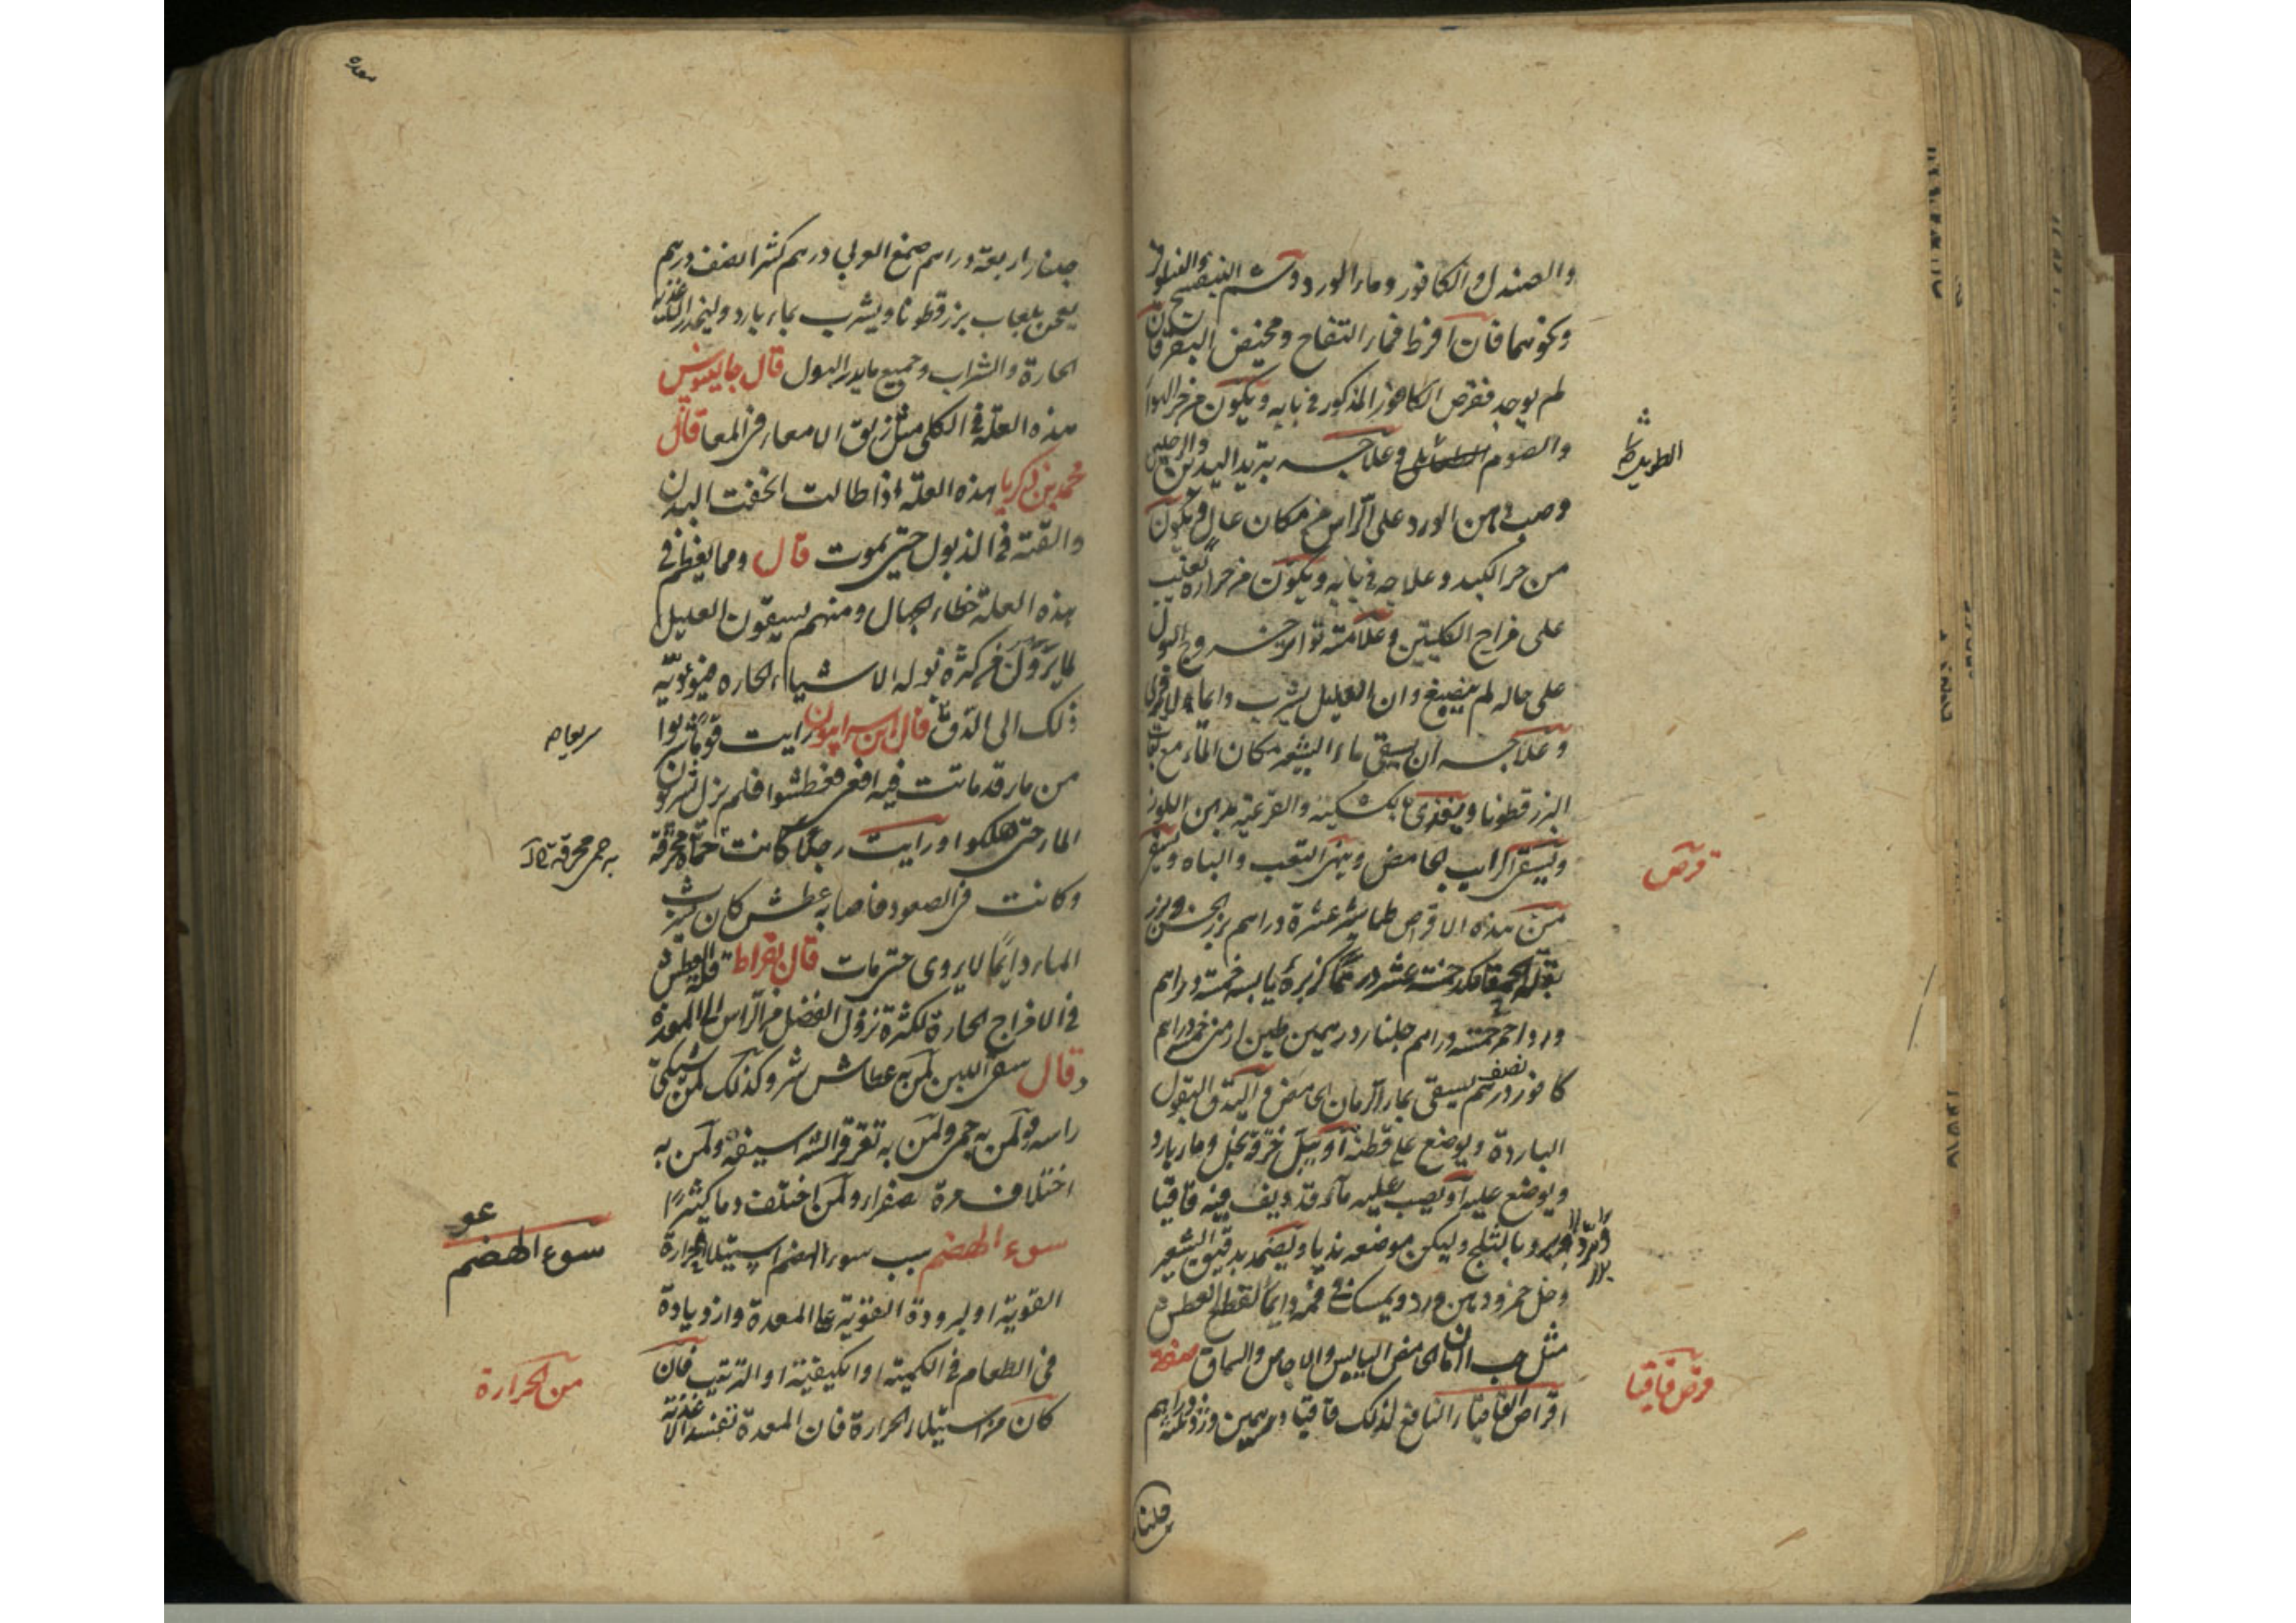 والصندل والكافور وماء الورد وشم البنفسج والنيلوفر
ونحوهما فان افرط فماء التفاح ومخيض البقر فان
لم يوجد فقرص الكافور المذكور في بابه ويكون من حر الهواء
والصوم وعلاجه تبريد اليدين والرجلين
وصب دهن الورد على الراس من مكان عال ويكون
من حر الكبد وعلاجه في بابه ويكون من حرارة تغلب
على مزاج الكليتين وعلامته تواتر خروج البول
على حاله لم ينصبغ وان العليل يشرب دايما ولا يروى
وعلاجه ان يسقى ماء الشعير مكان الماء مع لعاب
البزرقطونا ويغذى بالكشكية والقرعية بدهن اللوز
ويسقى الرايب الحامض وينهى التعب والباه ويسقى
من هذه الاقراص طباشير عشرة دراهم بزر الخس وبزر
بقلة الحمقا خمسة عشر درهما كزبرة يابسة خمسة دراهم
ورد احمر خمسة دراهم جلنار درهمين طين ارمني خمسة دراهم
كافور نصف درهم يسقى بماء الرمان الحامض البقول
الباردة ويوضع على قطنه او يبل خرقة بخل وماء بارد
ويوضع عليه او يصب عليه ماء قد ديف فيه قاقيا
وبرد بالثلج وليكن موضعه نديا ويضمد بدقيق الشعير
وخل خمر ودهن ورد ويمسك في فمه دايما لقطع العطش
مثل حب الرمان الحامض اليابس والاجاص والسماق صفة
اقراص القاقيا النافع لذلك قاقيا درهمين ورد ثلثة دراهم
قرص
قرص قاقيا
جلنار
جلنار اربعة دراهم صمغ العربي درهم كثيرا نصف درهم
يعجن بلعاب بزرقطونا ويشرب بماء بارد وليحذر الاغذية
الحارة والشراب وجميع ما يدر البول قال جالينوس
هذه العلة في الكلى مثل زلق الامعاء في المعا قال
محمد بن زكريا هذه العلة اذا طالت انحفت البدن
والقته في الذبول حتى يموت قال ومما يغلظ في
هذه العلة خطاء الجهال ومنهم يسقون العليل
لما يرون من كثرة بوله الاشياء الحاره فيؤديه
ذلك الى الدق قال ابن سرابيون رايت قوما شربوا
من ماء قد ماتت فيه افعى فعطشوا فلم يزل يشربون
الماء حتى هلكوا ورايت رجلا كانت حماه محرقة
وكانت في الصعود فاصابه عطش كان يشرب
الماء دايما لا يروى حتى مات قال بقراط قلة العطش
في الامزاج الحارة لكثرة نزول الفضل من الراس الى المعدة
وقال سقى اللبن لمن به عطاش شر وكذلك لمن يشتكي
راسه ولمن به حمى ولمن به تقرقر الشراسيف ولمن به
اختلاف مرة صفراء ولمن اختلف دما كثيرا
سوء الهضم سبب سوء الهضم استيلاء الحرارة
القوية او البرودة القوية على المعدة وازديادة
في الطعام في الكمية او الكيفية او الترتيب فان
كان من استيلاء الحرارة فان المعدة تفسد الاغذية
به حمى محرقة
سوء الهضم
من الحرارة